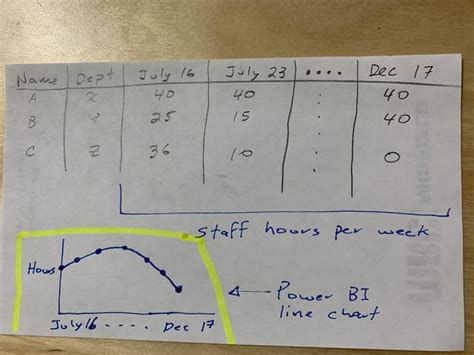 Name Dept July 16 July 23 .... Dec 17
A X 40 40 : 40
B Y 25 15 : 40
C Z 36 10 : 0
staff hours per week
Hours
July 16 .... Dec 17
Power BI
line chart